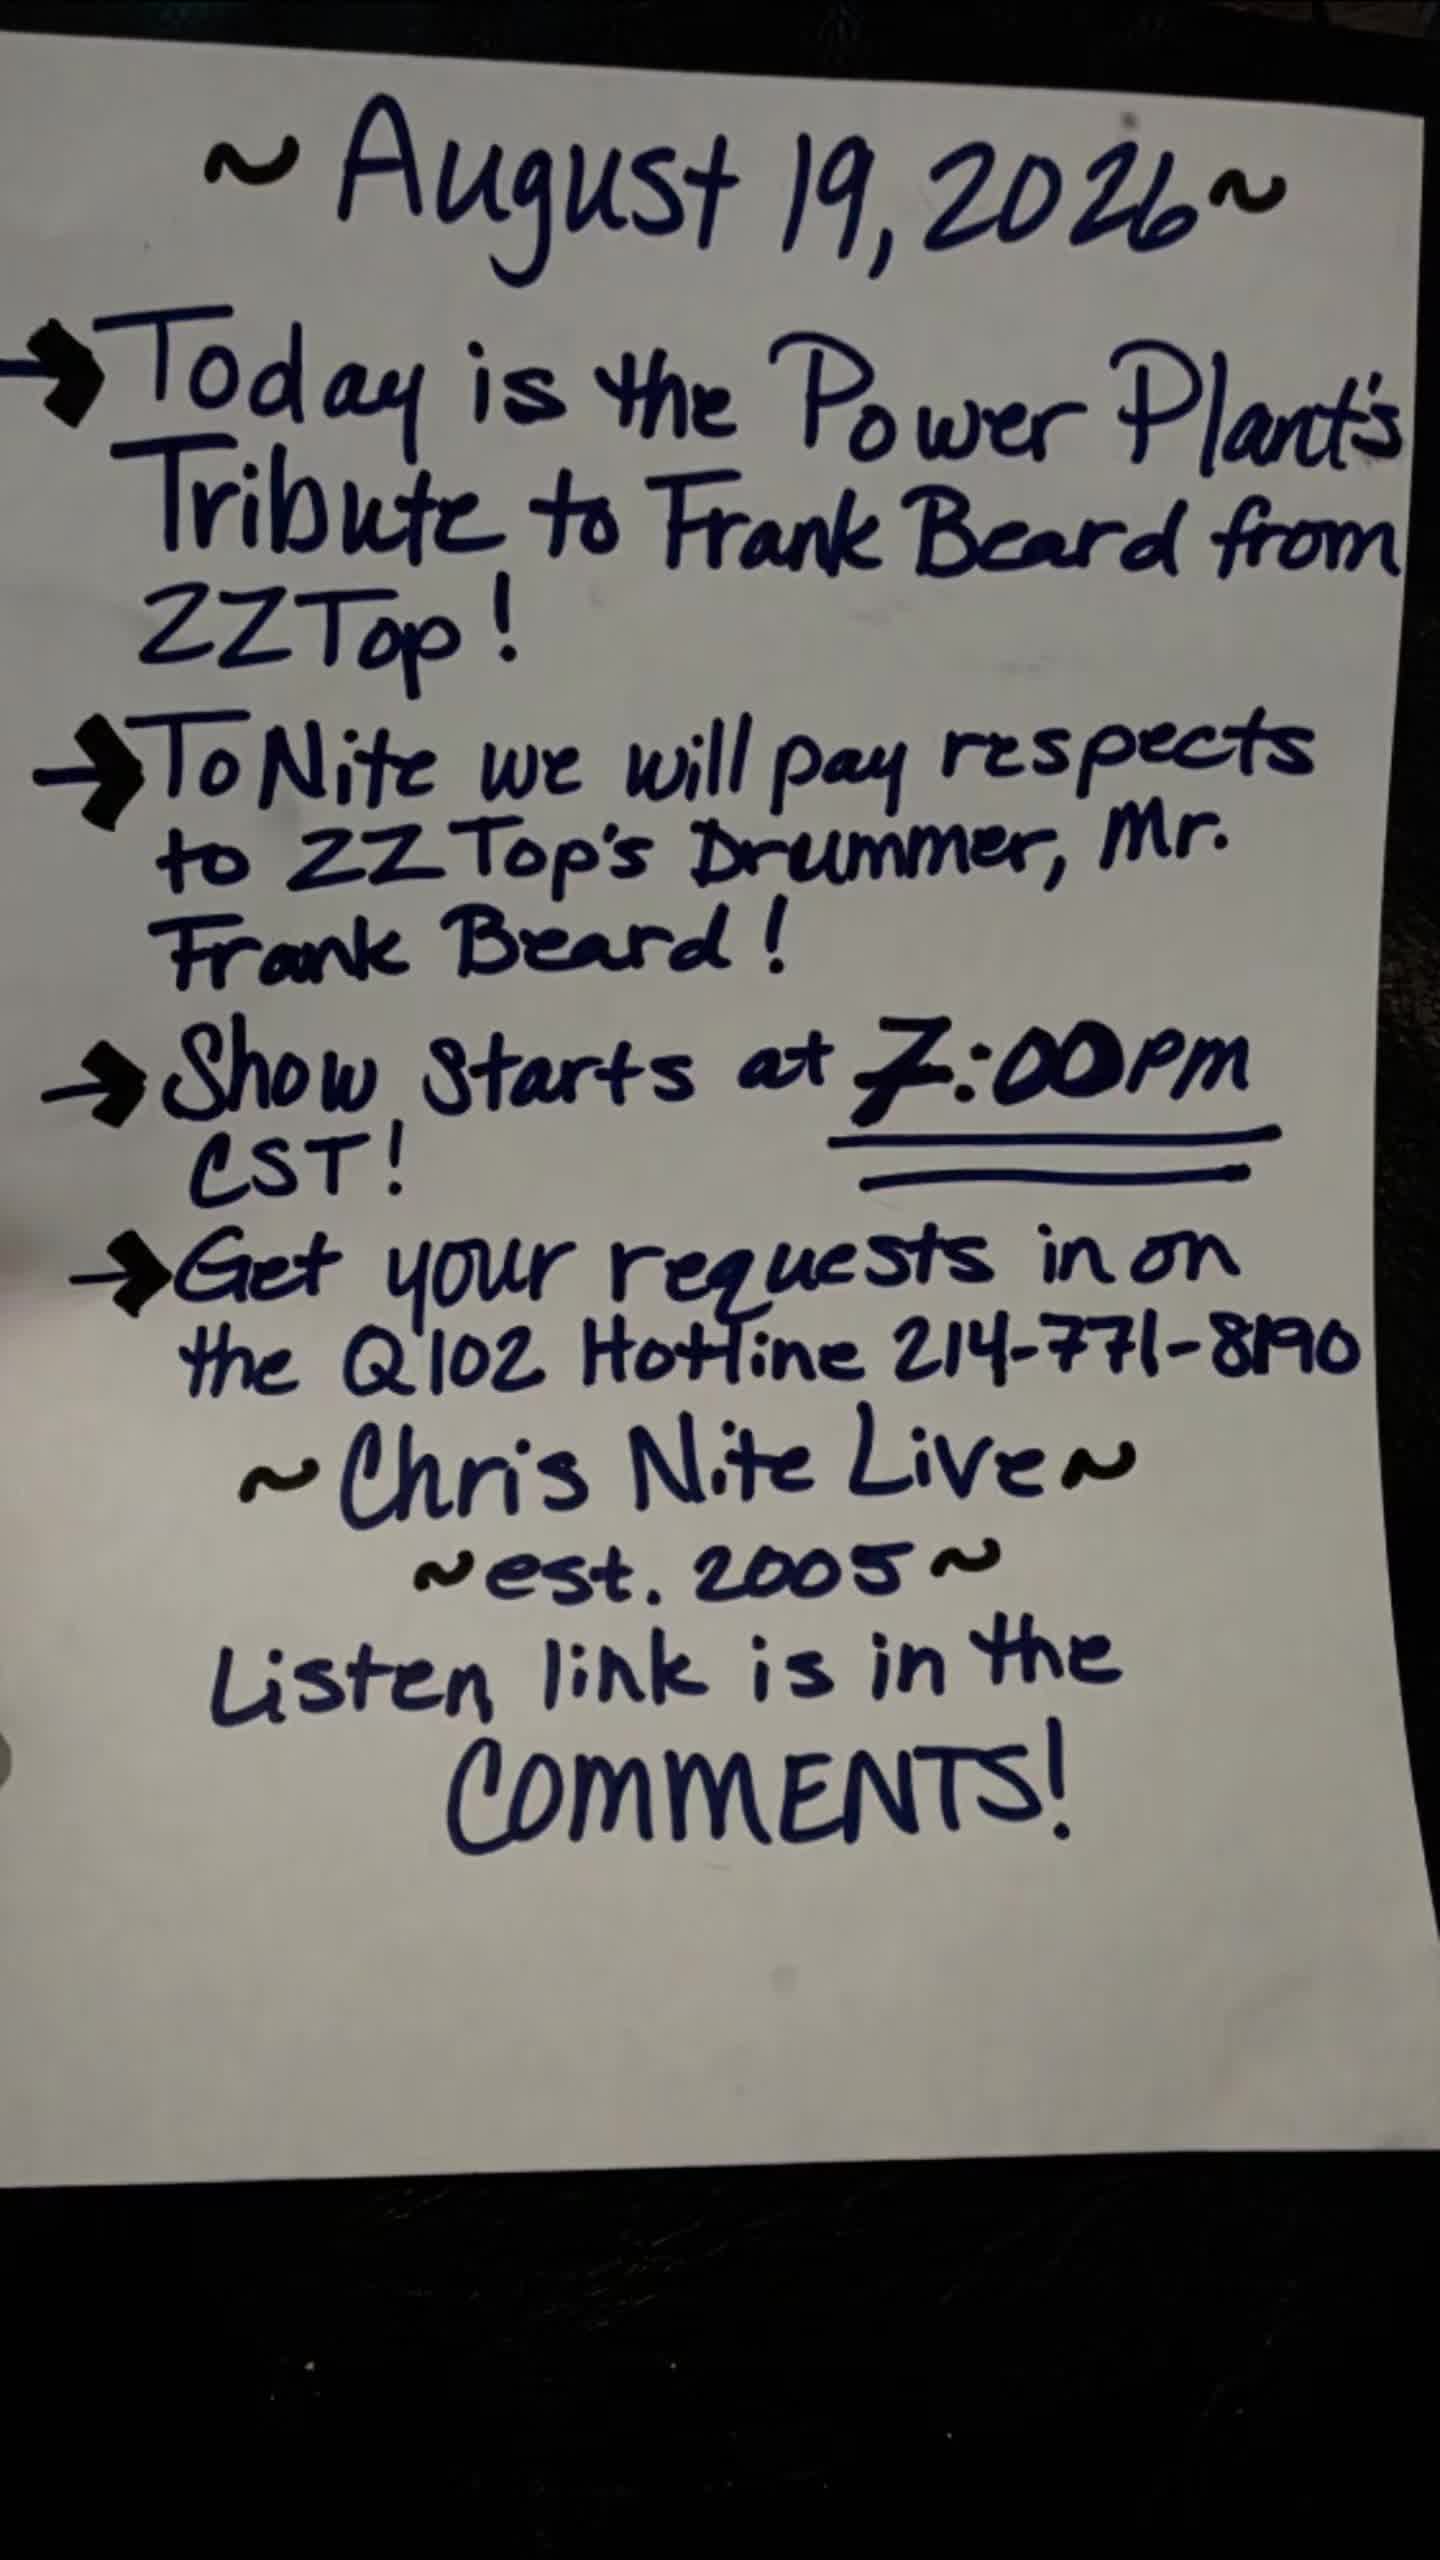 ~ August 19, 2026 ~
→ Today is the Power Plant's
Tribute to Frank Beard from
ZZ Top!
→ ToNite we will pay respects
to ZZ Top's Drummer, Mr.
Frank Beard!
→ Show Starts at 7:00pm
CST!
→ Get your requests in on
the Q102 Hotline 214-771-8190
~ Chris Nite Live ~
~ est. 2005 ~
Listen link is in the
COMMENTS!